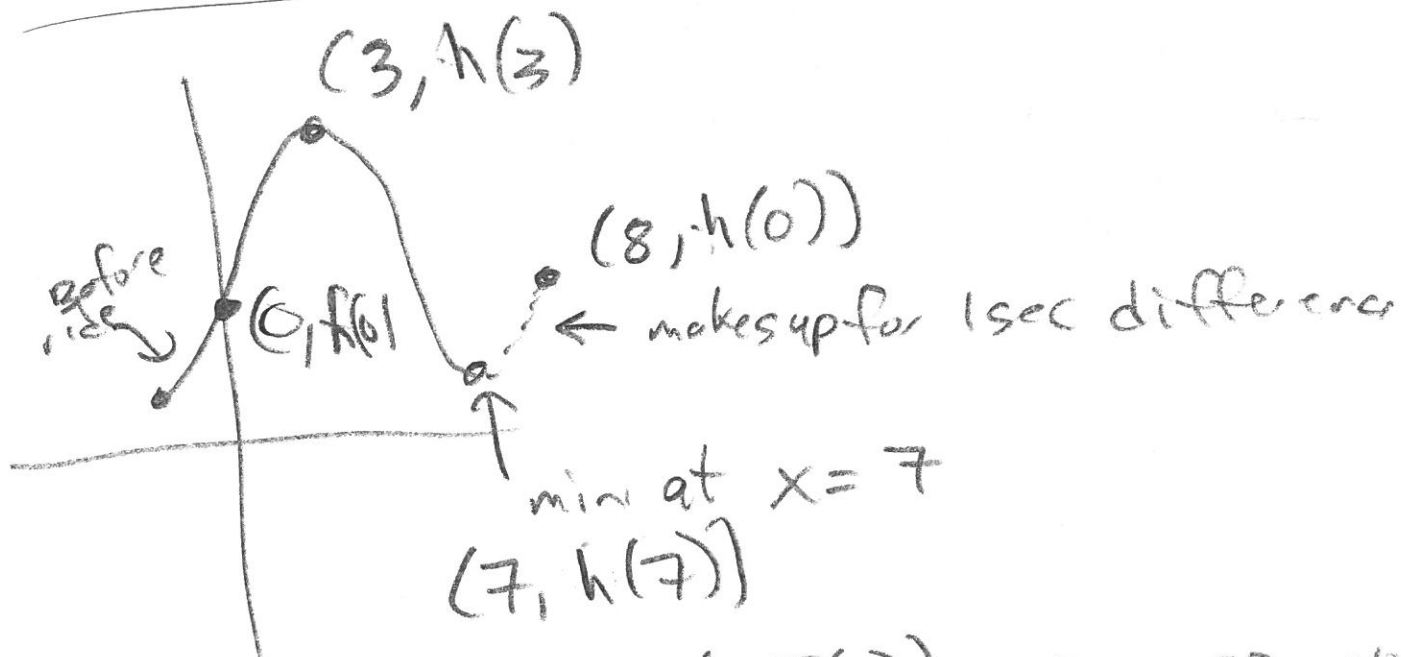 (3, h(3)
(8, h(0))
before
ride
(0, h(0)
← makes up for 1 sec difference
min at x = 7
(7, h(7))